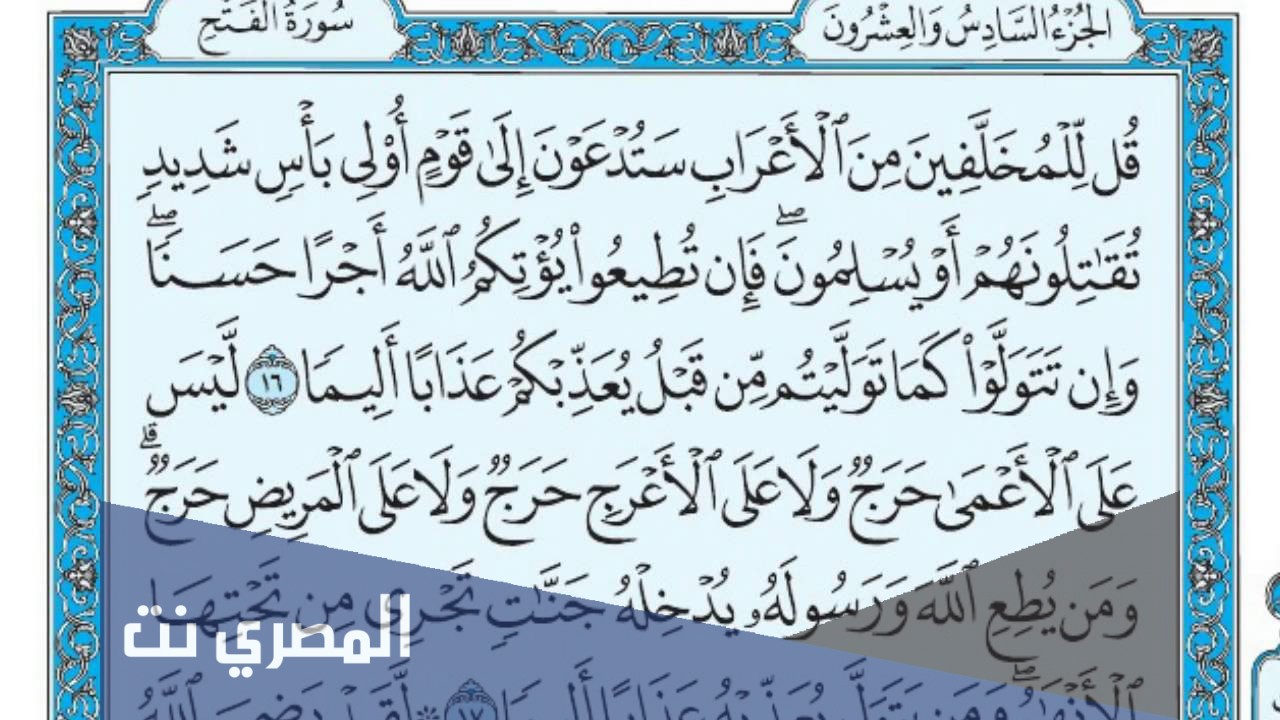 الجُزْءُ السَّادِسُ وَالعِشْرُونَ
سُورَةُ الفَتْحِ
قُل لِّلْمُخَلَّفِينَ مِنَ ٱلْأَعْرَابِ سَتُدْعَوْنَ إِلَىٰ قَوْمٍ أُو۟لِى بَأْسٍ شَدِيدٍ
تُقَـٰتِلُونَهُمْ أَوْ يُسْلِمُونَ ۖ فَإِن تُطِيعُوا۟ يُؤْتِكُمُ ٱللَّهُ أَجْرًا حَسَنًا ۖ
وَإِن تَتَوَلَّوْا۟ كَمَا تَوَلَّيْتُم مِّن قَبْلُ يُعَذِّبْكُمْ عَذَابًا أَلِيمًا ١٦ لَّيْسَ
عَلَى ٱلْأَعْمَىٰ حَرَجٌ وَلَا عَلَى ٱلْأَعْرَجِ حَرَجٌ وَلَا عَلَى ٱلْمَرِيضِ حَرَجٌ ۗ
وَمَن يُطِعِ ٱللَّهَ وَرَسُولَهُۥ يُدْخِلْهُ جَنَّـٰتٍ تَجْرِى مِن تَحْتِهَا
المصري نت
ٱلْأَنْهَـٰرُ ۖ وَمَن يَتَوَلَّ يُعَذِّبْهُ عَذَابًا أَلِيمًا ١٧ ۞ لَّقَدْ رَضِىَ ٱللَّهُ